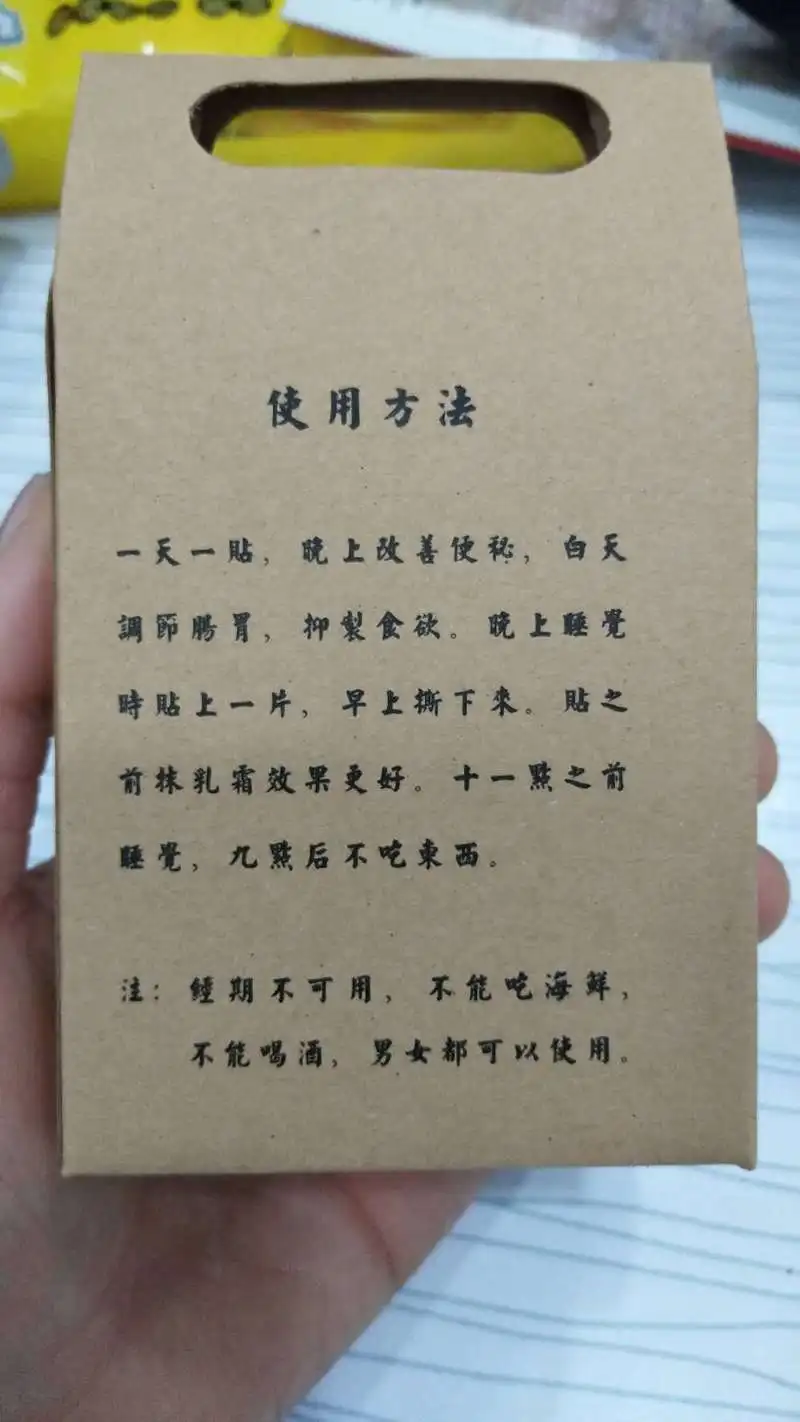 使用方法
一天一貼，晚上改善便秘，白天
調節腸胃，抑製食欲。晚上睡覺
時貼上一片，早上撕下來。貼之
前抹乳霜效果更好。十一點之前
睡覺，九點后不吃東西。
注：經期不可用，不能吃海鮮，
不能喝酒，男女都可以使用。